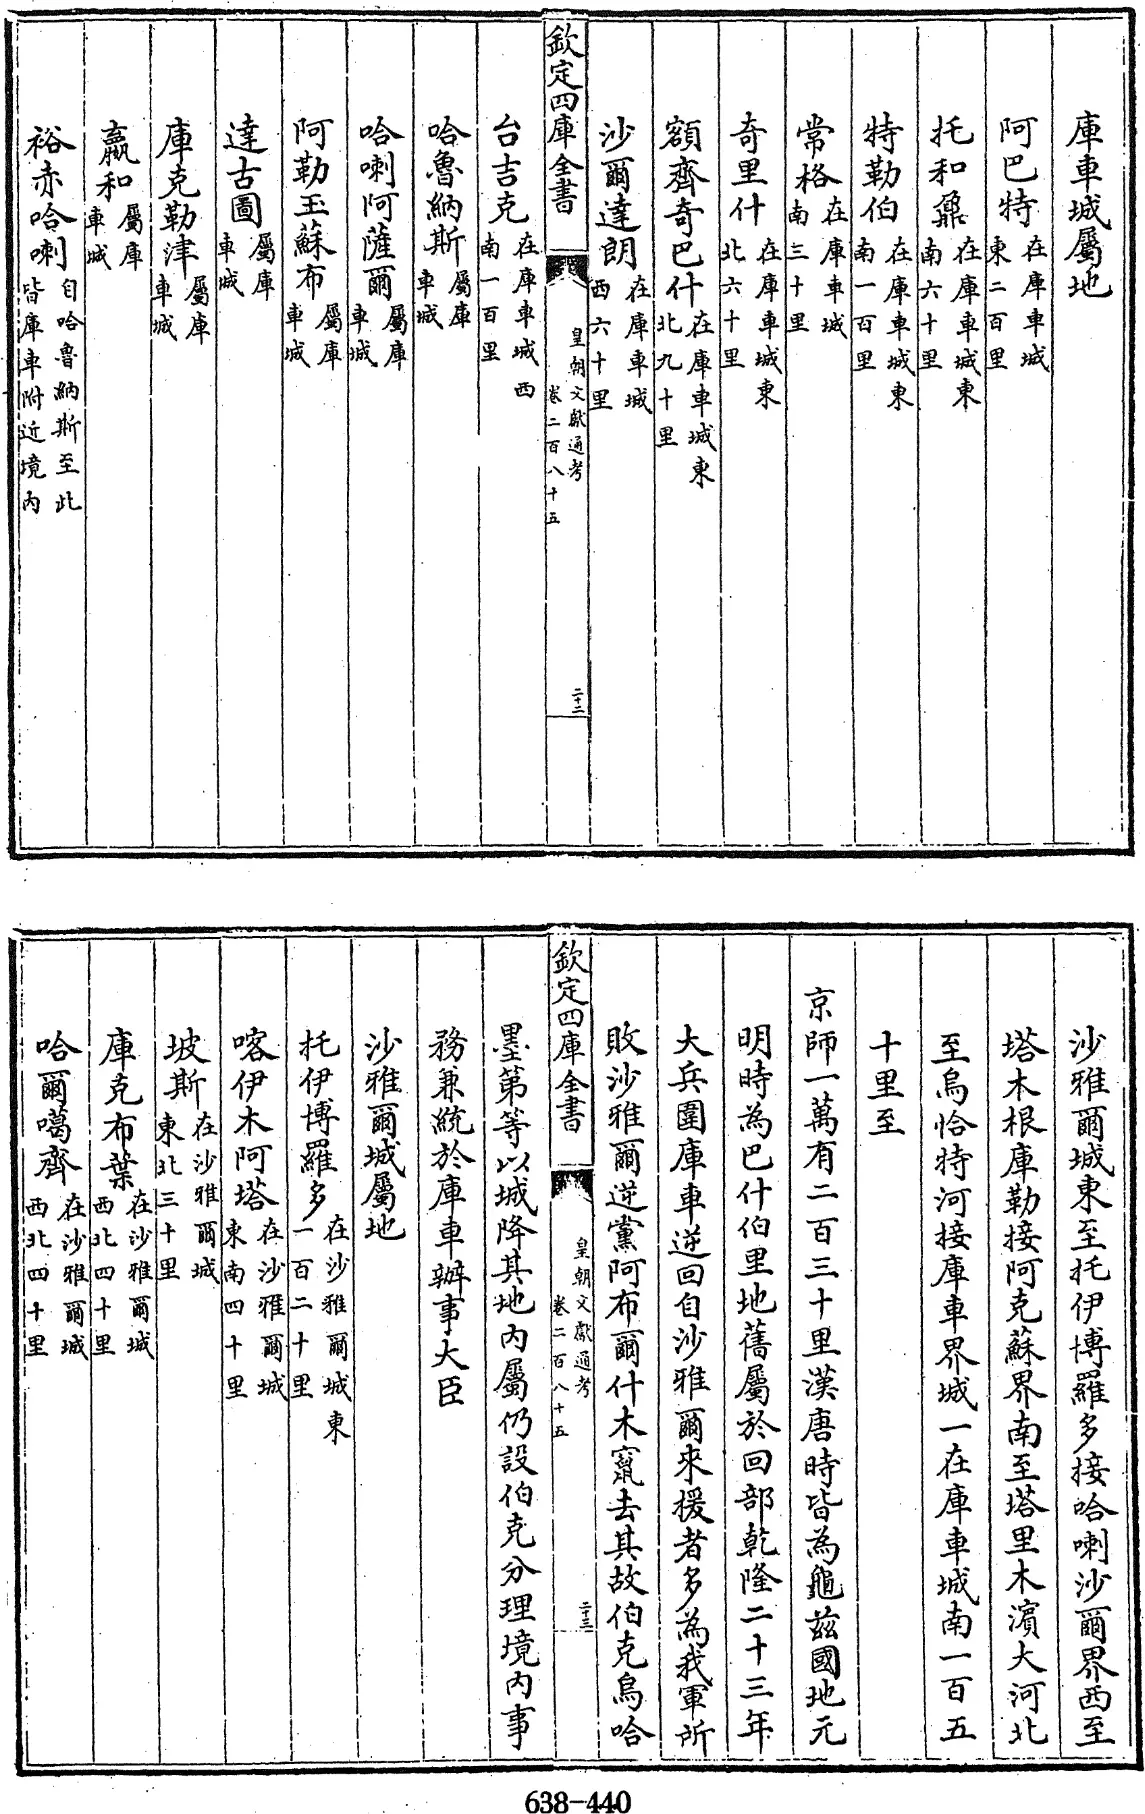 庫車城屬地
阿巴特在庫車城東二百里
托和鼐在庫車城東南六十里
特勒伯在庫車城東南一百里
常格在庫車城南三十里
奇里什在庫車城東北六十里
額齊奇巴什在庫車城東北九十里
沙爾達朗在庫車城西六十里
欽定四庫全書
皇朝文獻通考
卷二百八十五
二十二
台吉克在庫車城西南一百里
哈魯納斯屬庫車城
哈喇阿薩爾屬庫車城
阿勒玉蘇布屬庫車城
達古圖屬庫車城
庫克勒津屬庫車城
贏和屬庫車城
裕赤哈喇自哈魯納斯至此皆庫車附近境內
沙雅爾城東至托伊博羅多接哈喇沙爾界西至
塔木根庫勒接阿克蘇界南至塔里木濱大河北
至烏恰特河接庫車界城一在庫車城南一百五
十里至
京師一萬有二百三十里漢唐時皆為龜茲國地元
明時為巴什伯里地舊屬於回部乾隆二十三年
大兵圍庫車逆回自沙雅爾來援者多為我軍所
敗沙雅爾逆黨阿布爾什木竄去其故伯克烏哈
欽定四庫全書
皇朝文獻通考
卷二百八十五
二十三
墨第等以城降其地內屬仍設伯克分理境內事
務兼統於庫車辦事大臣
沙雅爾城屬地
托伊博羅多在沙雅爾城東一百二十里
喀伊木阿塔在沙雅爾城東南四十里
坡斯在沙雅爾城東北三十里
庫克布葉在沙雅爾城西北四十里
哈爾噶齊在沙雅爾城西北四十里
638-440